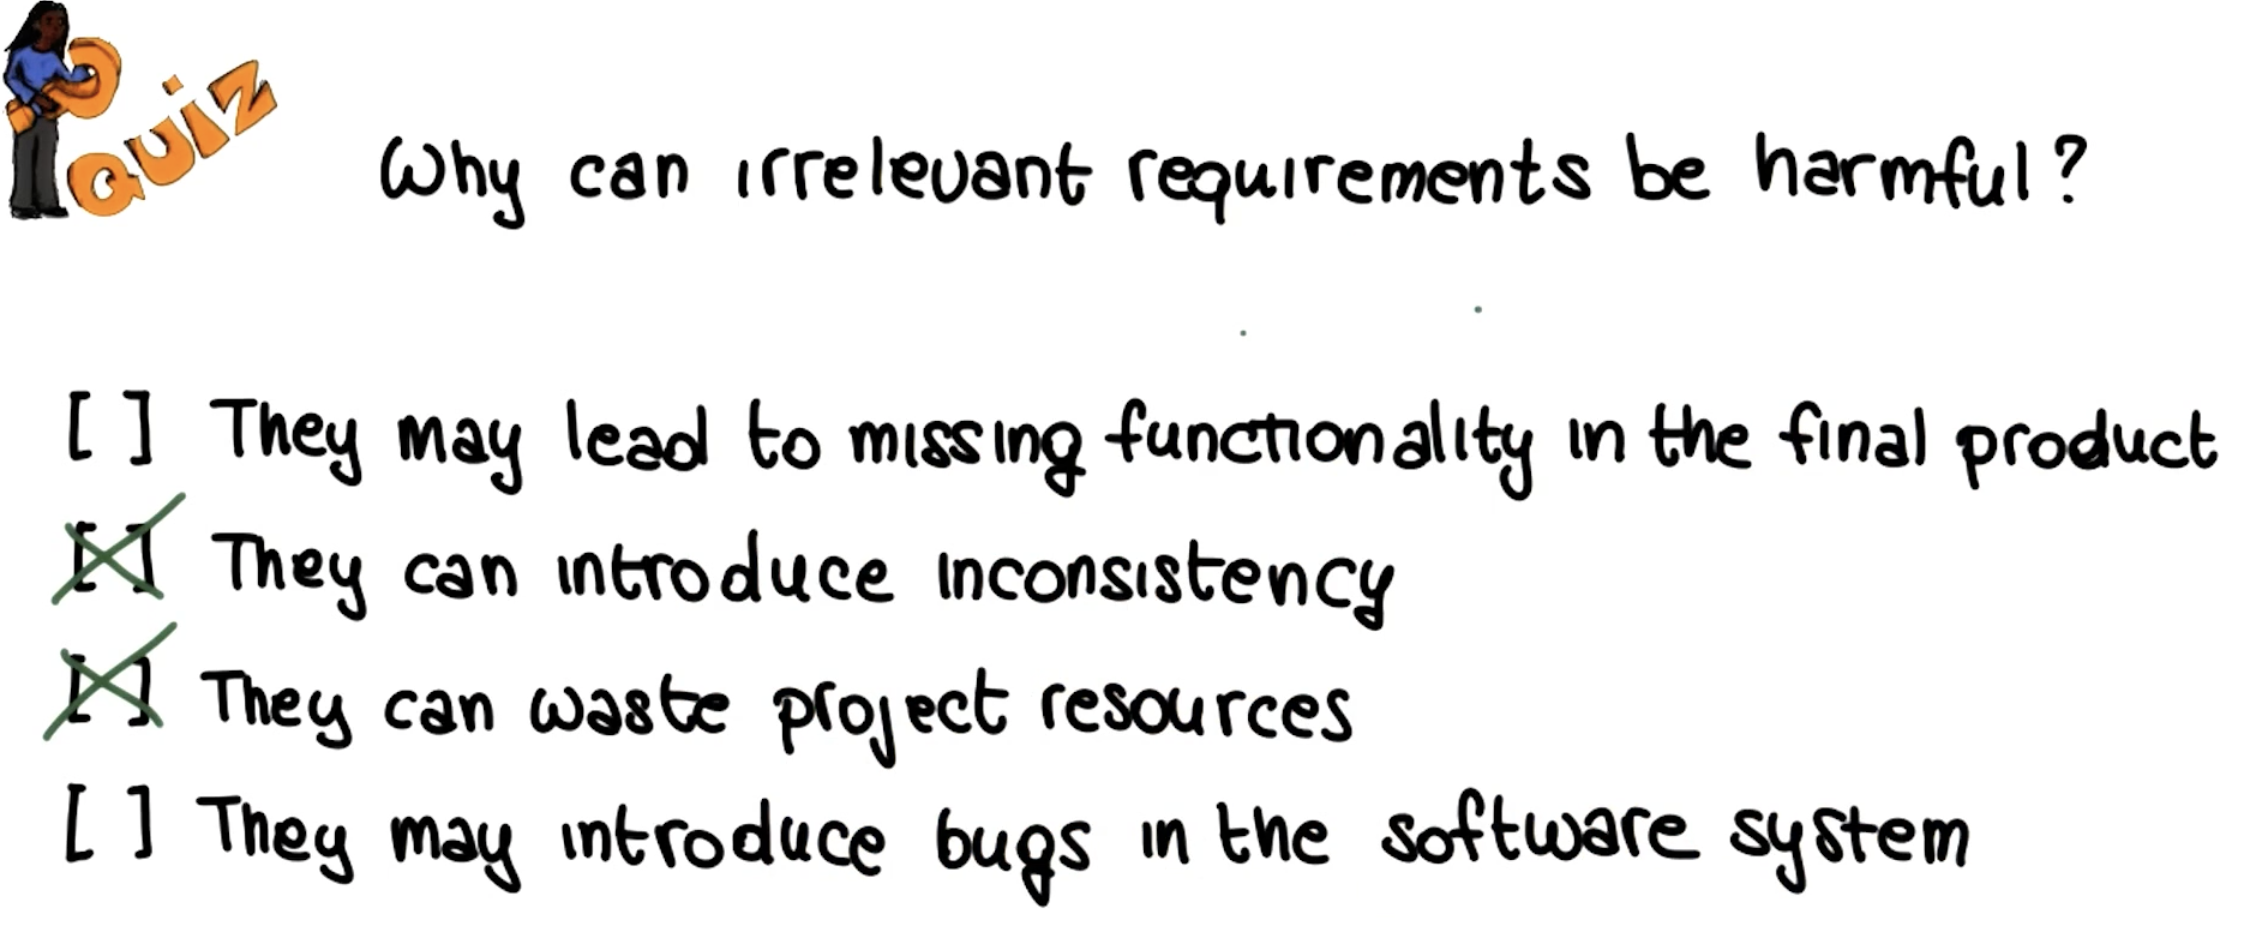 QUIZ
Why can irrelevant requirements be harmful?
[ ] They may lead to missing functionality in the final product
[X] They can introduce inconsistency
[X] They can waste project resources
[ ] They may introduce bugs in the software system